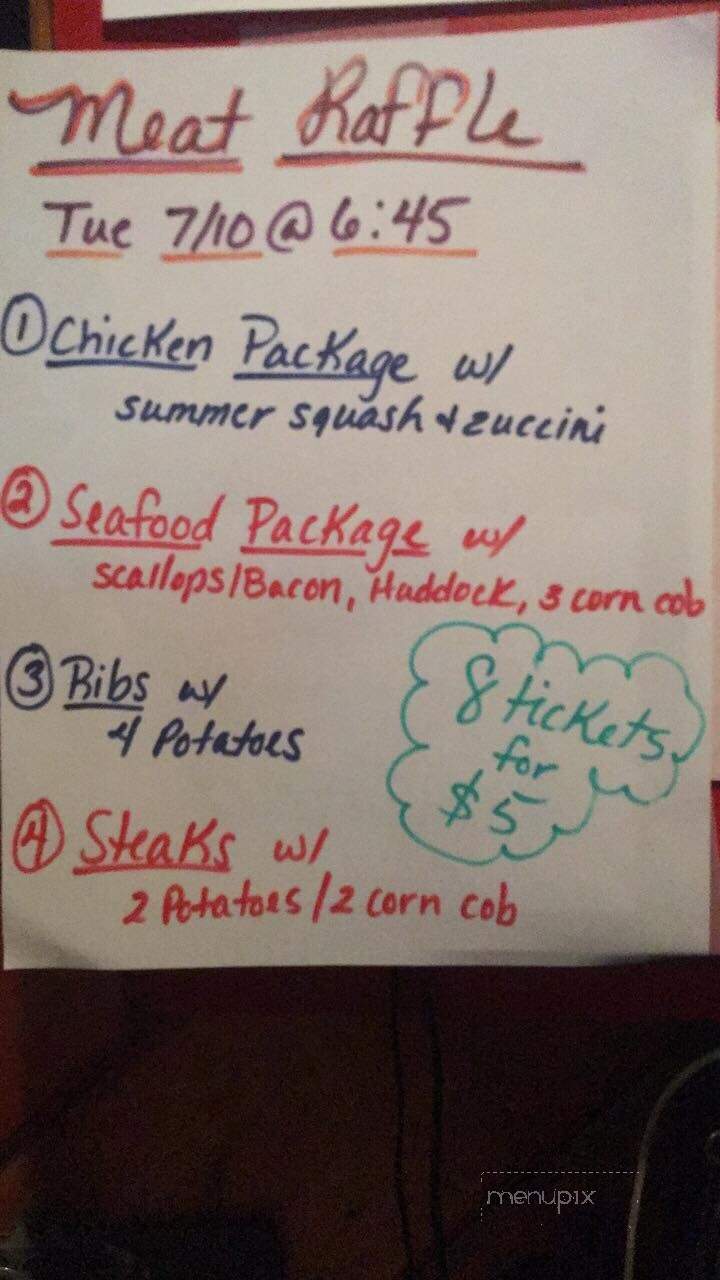 Meat Raffle
Tue 7/10 @ 6:45
① Chicken Package w/
summer squash & zuccini
② Seafood Package w/
scallops/Bacon, Haddock, 3 corn cob
③ Ribs w/
4 Potatoes
8 tickets
for
$5
④ Steaks w/
2 Potatoes/2 corn cob
menupix